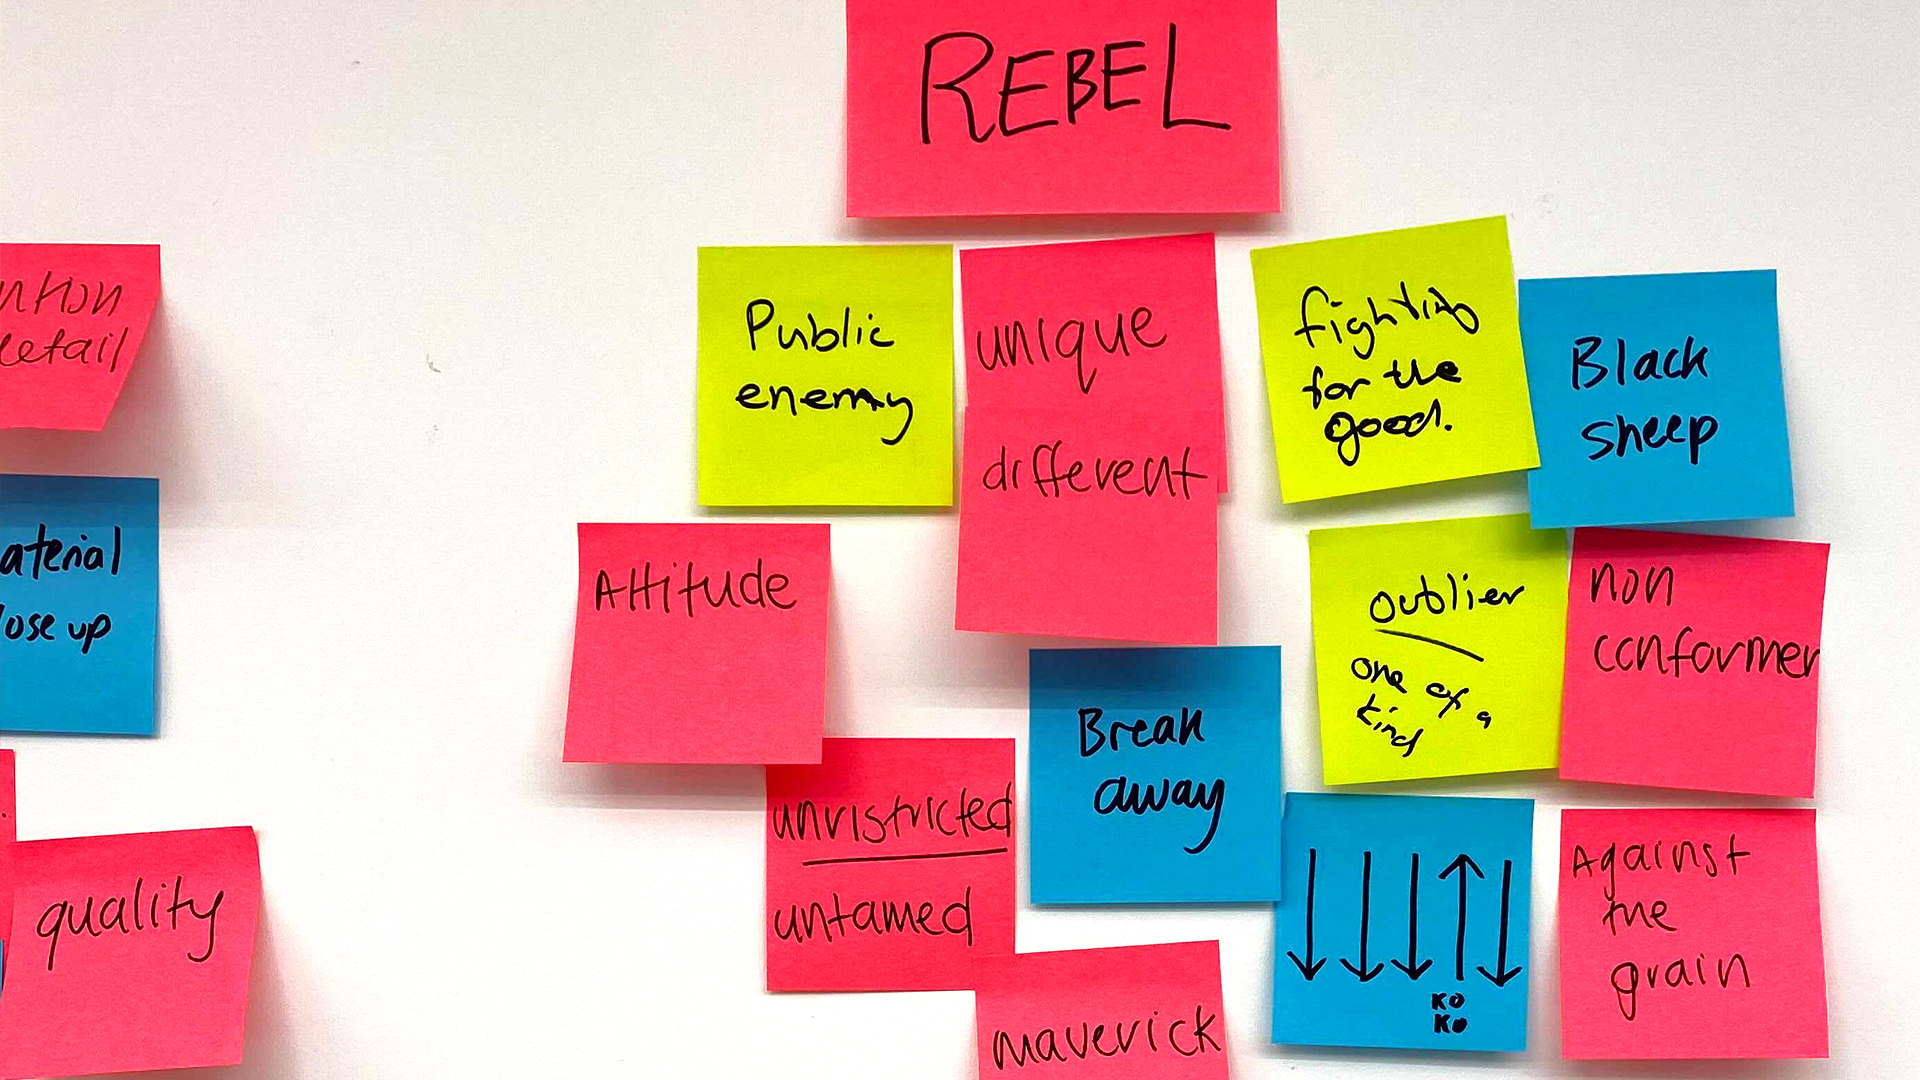 REBEL
Public
enemy
unique
different
fighting
for the
good.
Black
sheep
Attitude
Outlier
one of a
kind
non
conformer
Break
away
unristricted
untamed
KO
KO
Against
the
grain
maverick
ntion
detail
aterial
lose up
quality